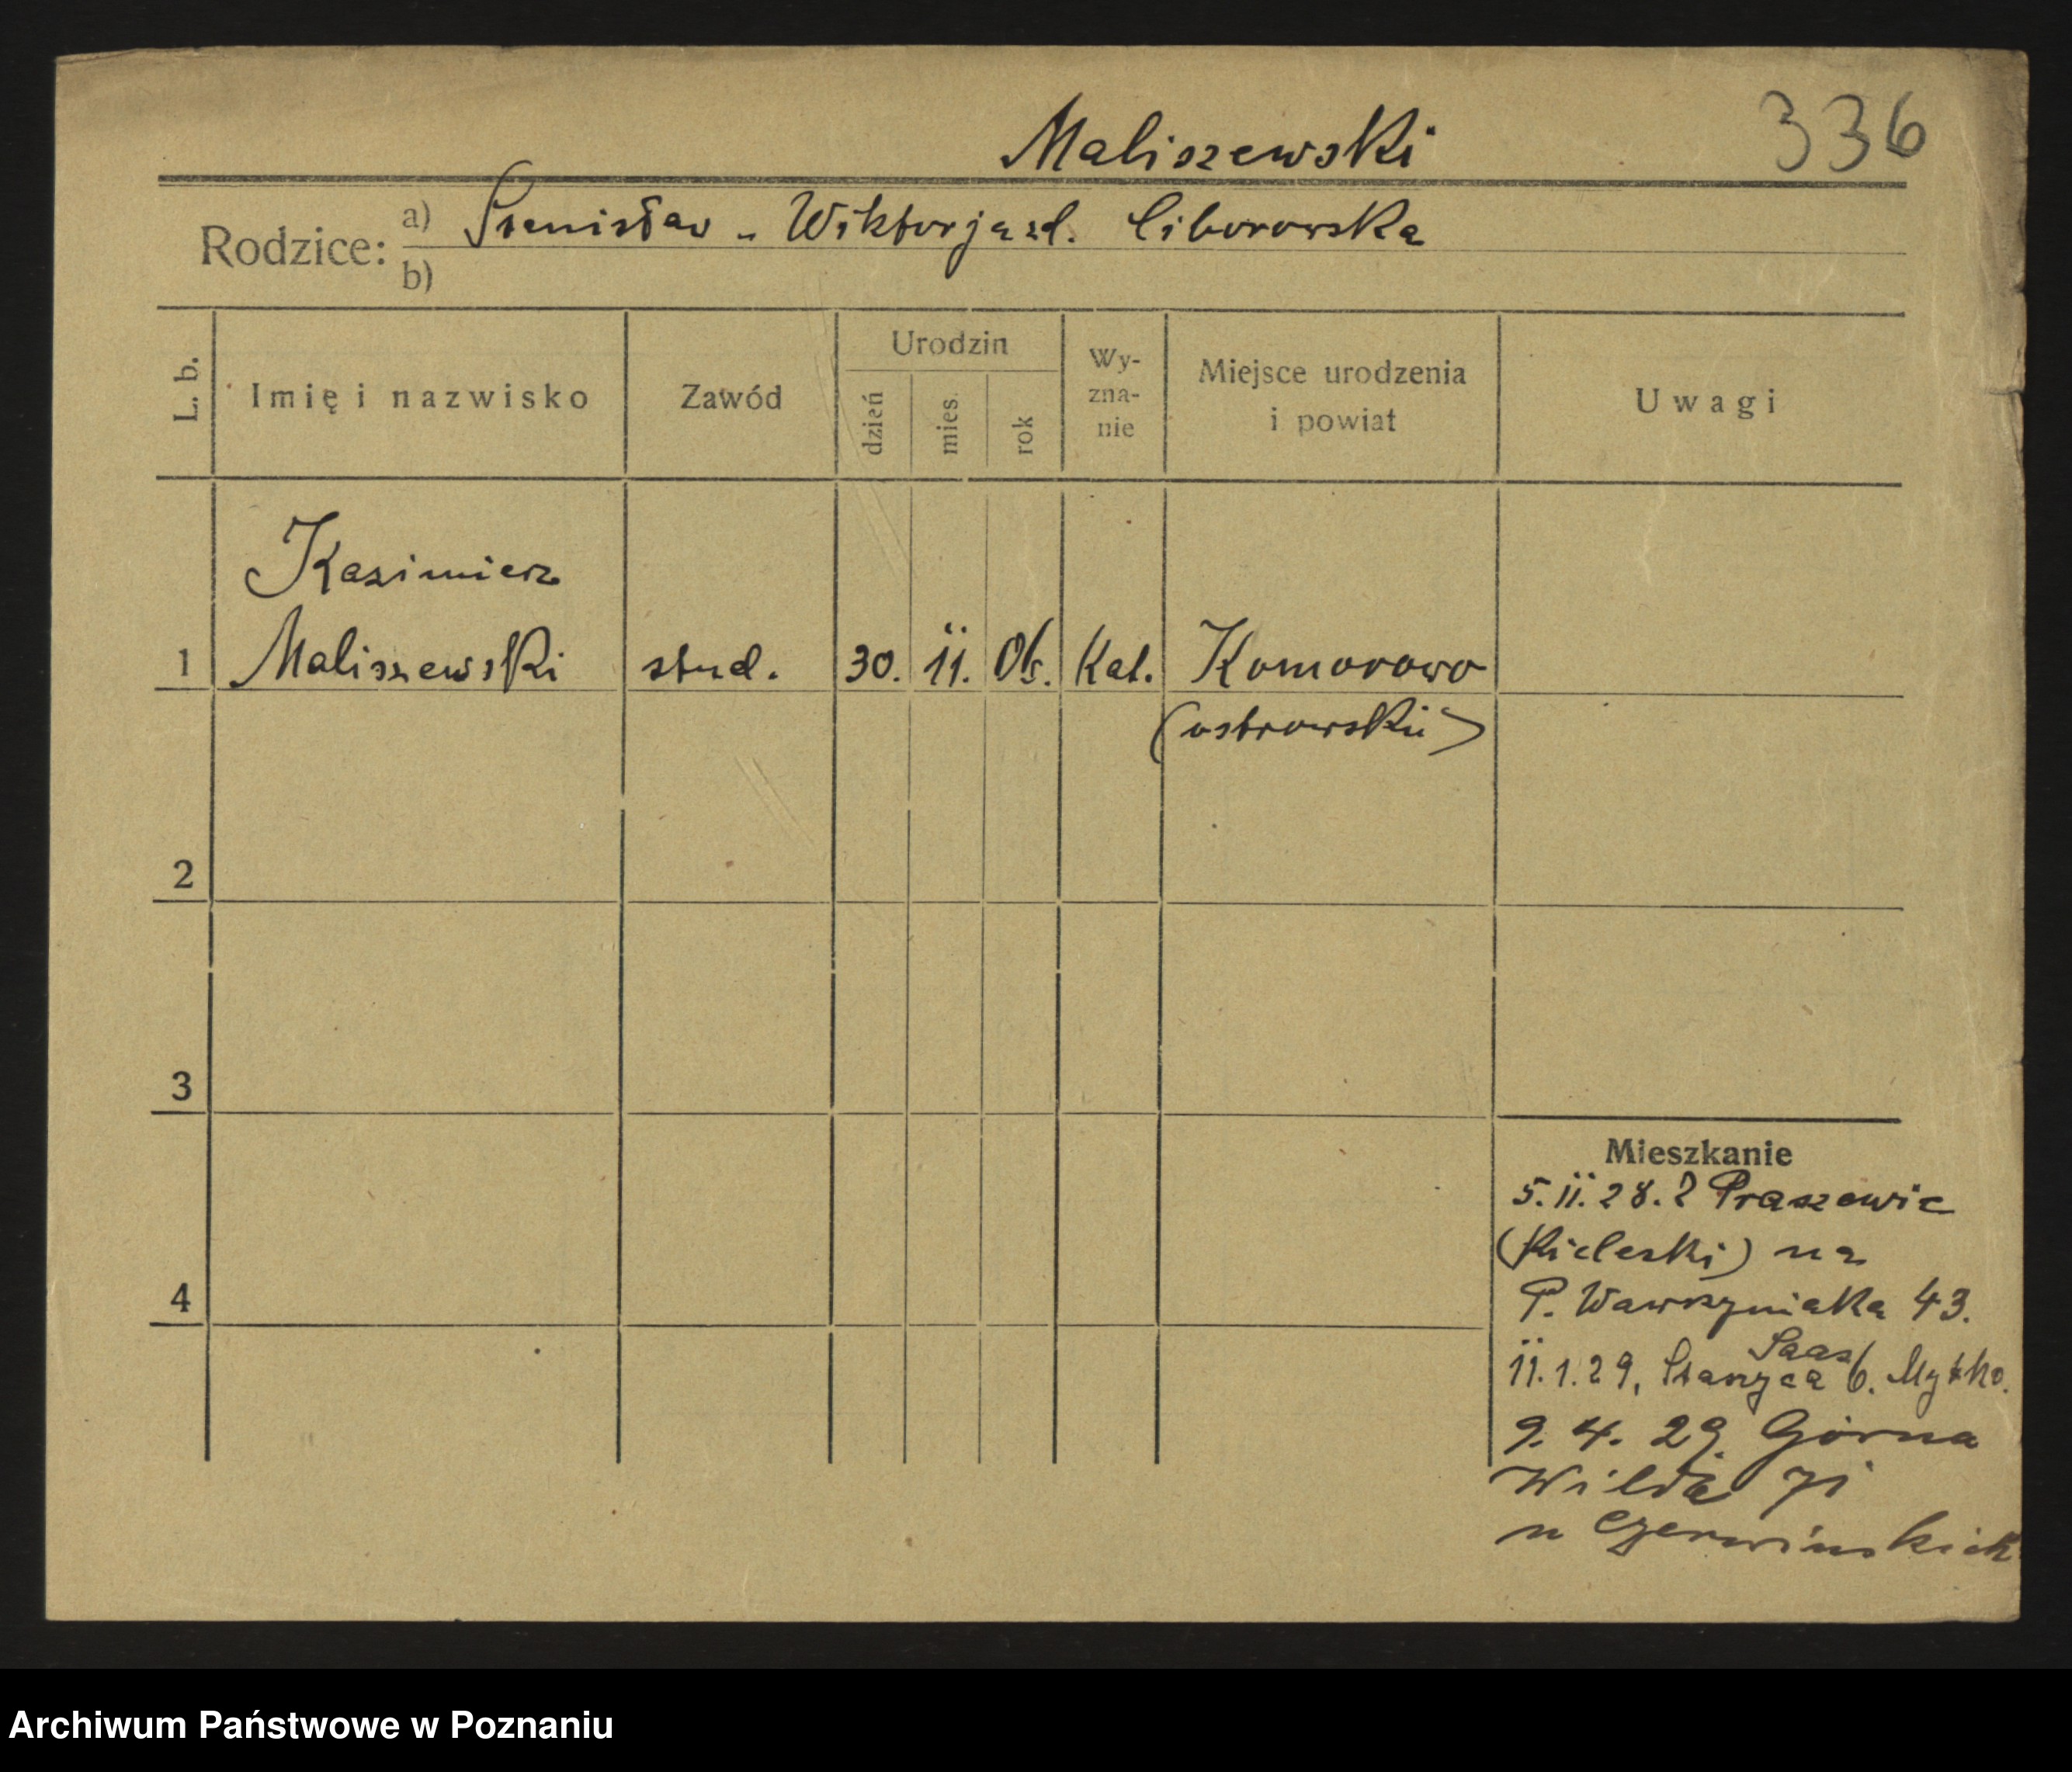 Maliszewski
336
Rodzice: a) Stanisław - Wiktorja zd. Ciborowska
b)
L. b.
Imię i nazwisko
Zawód
Urodzin
dzień
mies.
rok
Wy-
zna-
nie
Miejsce urodzenia
i powiat
Uwagi
Kazimierz
1 Maliszewski stud. 30. 11. 06. Kat. Komorowo
(ostrowski)
2
3
4
Mieszkanie
5. 11. 28. z Praszewic
(Kielecki) na
P. Wawrzyniaka 43.
Saas
11. 1. 29, Staszyca 6.
9. 4. 29. Górna
Wilda 71
u Czerwińskich
Archiwum Państwowe w Poznaniu